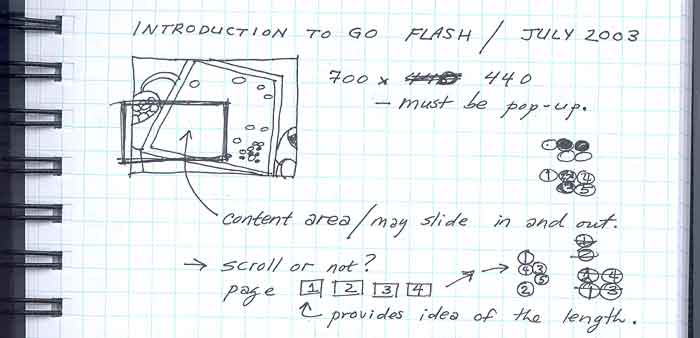 INTRODUCTION TO GO FLASH / JULY 2003
700 x 440
— must be pop-up.
1 4
5
content area/may slide in and out.
→ scroll or not?
page 1 2 3 4 → →
1
4 3
5
2
1
2
2 4
1 3
provides idea of the length.